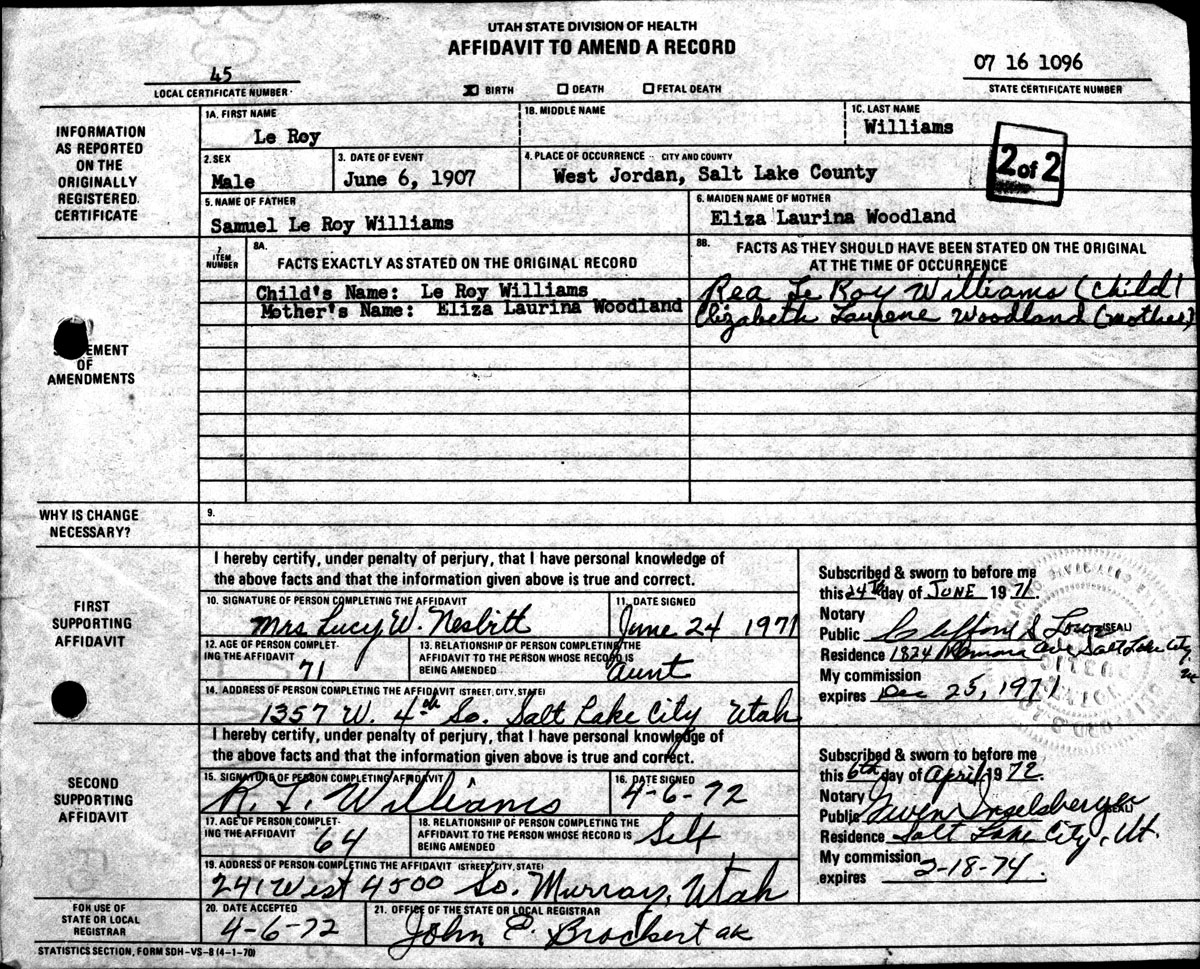 UTAH STATE DIVISION OF HEALTH
AFFIDAVIT TO AMEND A RECORD
45
LOCAL CERTIFICATE NUMBER
☒ BIRTH ☐ DEATH ☐ FETAL DEATH
07 16 1096
STATE CERTIFICATE NUMBER
INFORMATION
AS REPORTED
ON THE
ORIGINALLY
REGISTERED
CERTIFICATE
1A. FIRST NAME
Le Roy
1B. MIDDLE NAME
1C. LAST NAME
Williams
2 of 2
2. SEX
Male
3. DATE OF EVENT
June 6, 1907
4. PLACE OF OCCURRENCE -- CITY AND COUNTY
West Jordan, Salt Lake County
5. NAME OF FATHER
Samuel Le Roy Williams
6. MAIDEN NAME OF MOTHER
Eliza Laurina Woodland
EMENT
OF
AMENDMENTS
7
ITEM
NUMBER
8A.
FACTS EXACTLY AS STATED ON THE ORIGINAL RECORD
8B. FACTS AS THEY SHOULD HAVE BEEN STATED ON THE ORIGINAL
AT THE TIME OF OCCURRENCE
Child's Name: Le Roy Williams
Rea Le Roy Williams (Child)
Mother's Name: Eliza Laurina Woodland
Elizabeth Laurene Woodland (Mother)
WHY IS CHANGE
NECESSARY?
9.
FIRST
SUPPORTING
AFFIDAVIT
I hereby certify, under penalty of perjury, that I have personal knowledge of
the above facts and that the information given above is true and correct.
10. SIGNATURE OF PERSON COMPLETING THE AFFIDAVIT
Mrs Lucy W. Nesbitt
11. DATE SIGNED
June 24 1971
12. AGE OF PERSON COMPLET-
ING THE AFFIDAVIT
71
13. RELATIONSHIP OF PERSON COMPLETING THE
AFFIDAVIT TO THE PERSON WHOSE RECORD IS
BEING AMENDED
aunt
14. ADDRESS OF PERSON COMPLETING THE AFFIDAVIT (STREET, CITY, STATE)
1357 W. 4th So. Salt Lake City Utah
Subscribed & sworn to before me
this 24Th day of JUNE 1971.
Notary
Public Clifford S (SEAL)
Residence 1824 Ramona Ave Salt Lake City,
My commission
expires Dec 25, 1971
SECOND
SUPPORTING
AFFIDAVIT
I hereby certify, under penalty of perjury, that I have personal knowledge of
the above facts and that the information given above is true and correct.
15. SIGNATURE OF PERSON COMPLETING AFFIDAVIT
R. L. Williams
16. DATE SIGNED
4-6-72
17. AGE OF PERSON COMPLET-
ING THE AFFIDAVIT
64
18. RELATIONSHIP OF PERSON COMPLETING THE
AFFIDAVIT TO THE PERSON WHOSE RECORD IS
BEING AMENDED
Self
19. ADDRESS OF PERSON COMPLETING THE AFFIDAVIT (STREET, CITY, STATE)
241 West 4500 So. Murray, Utah
Subscribed & sworn to before me
this 6th day of April 1972.
Notary
Public Gwen
Residence Salt Lake City, Ut.
My commission
expires 2-18-74
FOR USE OF
STATE OR LOCAL
REGISTRAR
20. DATE ACCEPTED
4-6-72
21. OFFICE OF THE STATE OR LOCAL REGISTRAR
John E. Brockert ak
STATISTICS SECTION, FORM SDH-VS-8 (4-1-70)